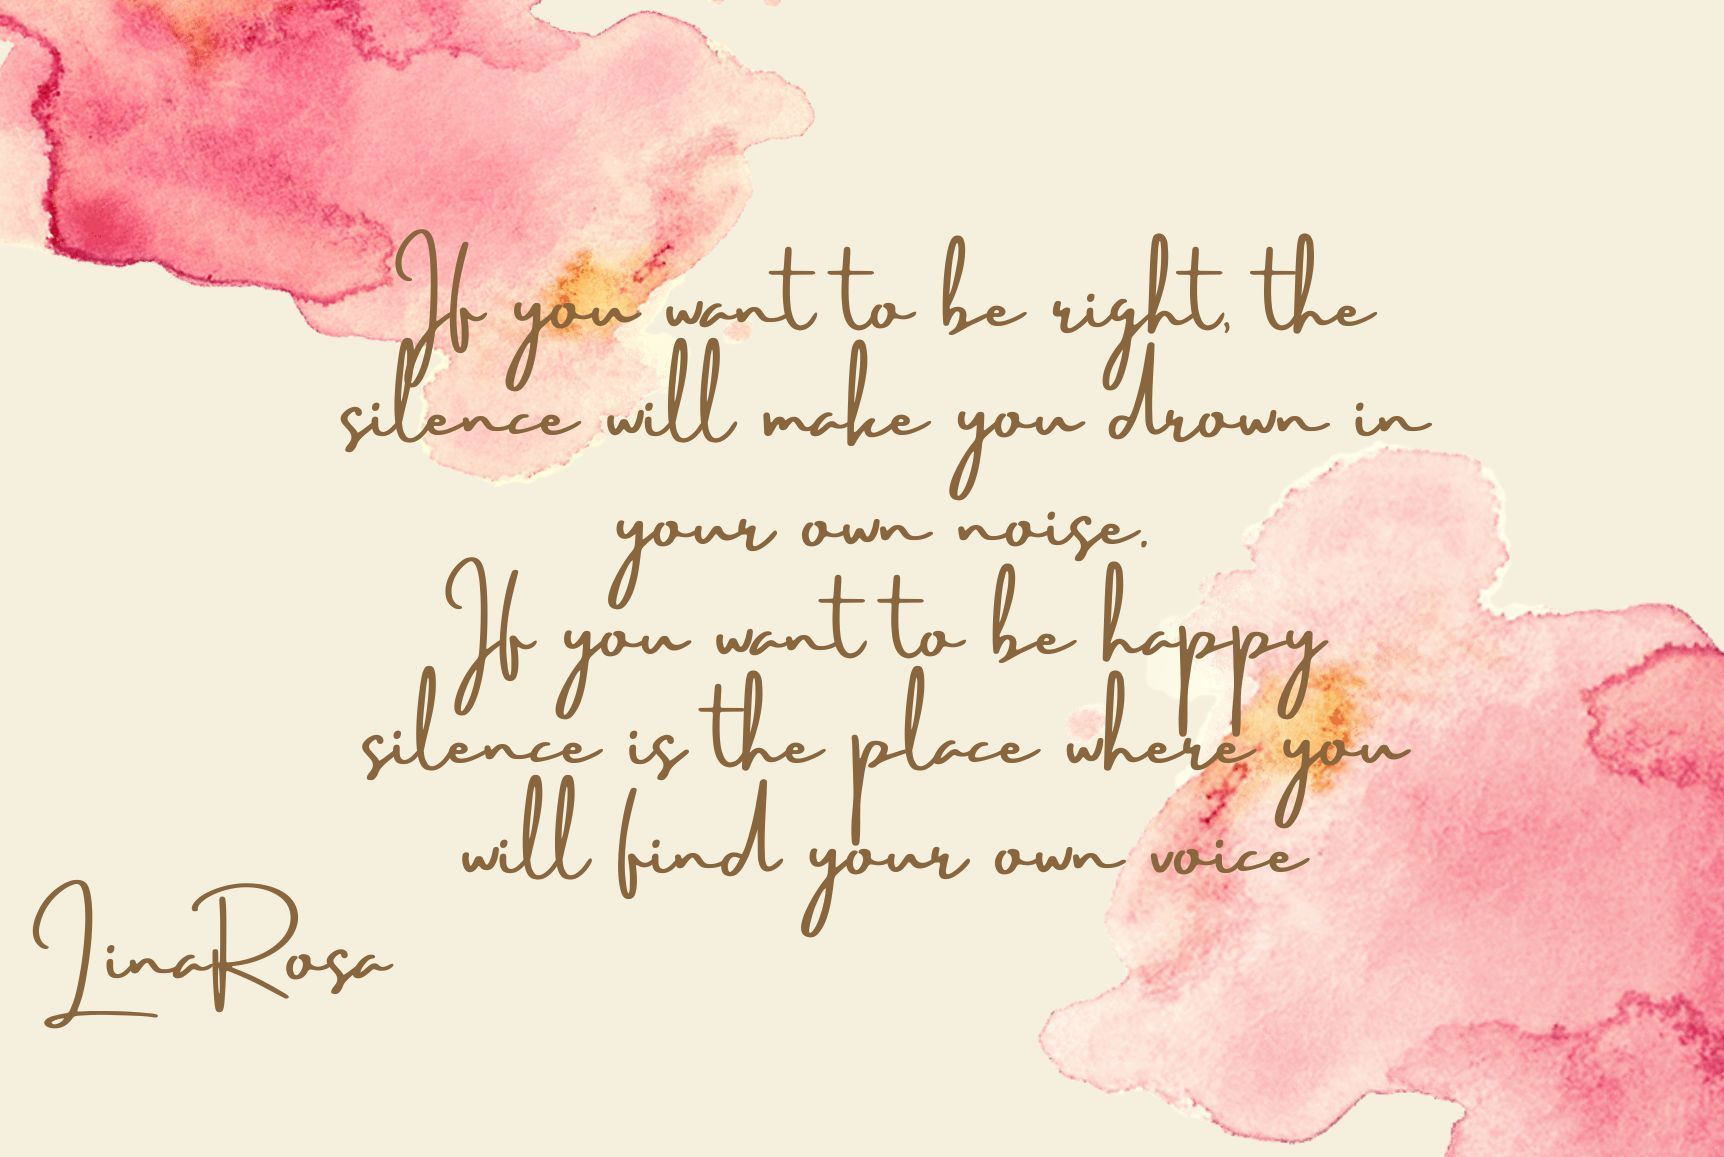 If you want to be right, the
silence will make you drown in
your own noise.
If you want to be happy
silence is the place where you
will find your own voice
LinaRosa